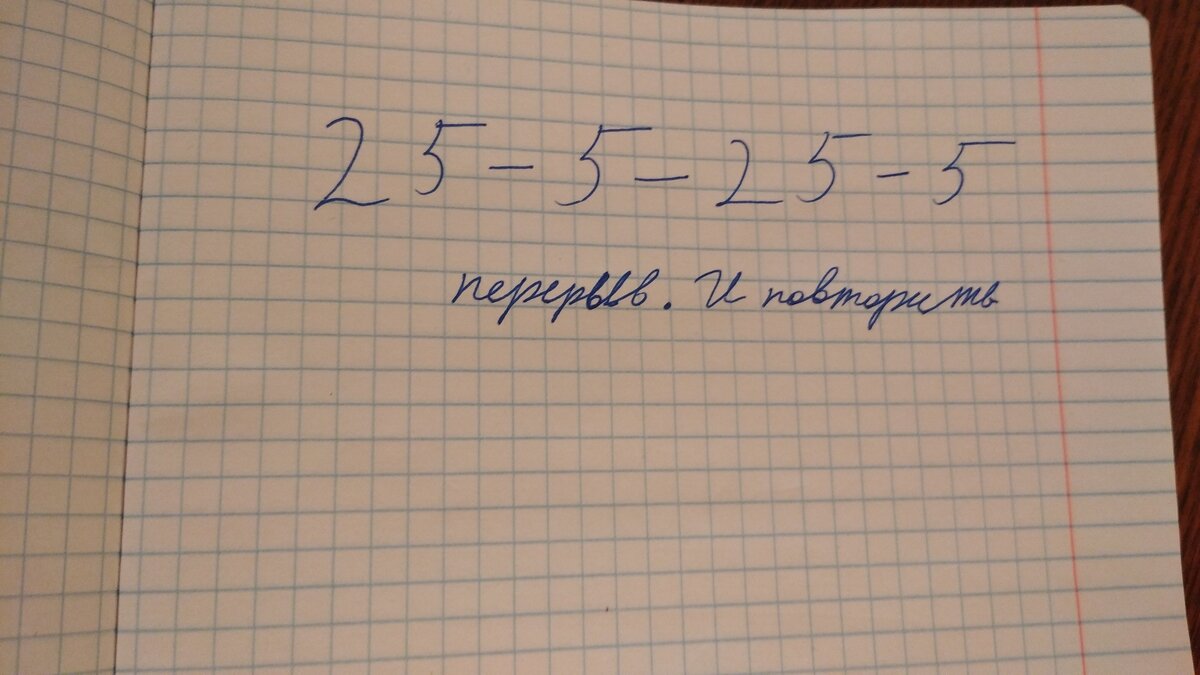 25 - 5 - 25 - 5
перерыв. И повторить